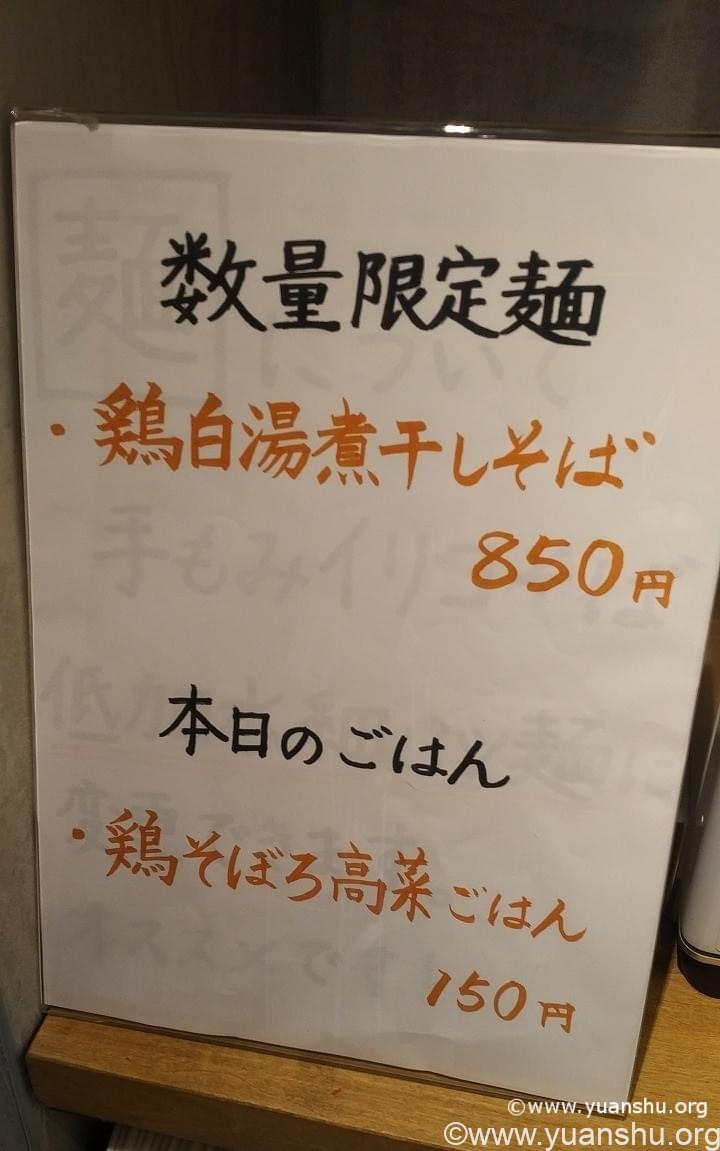 数量限定麺
・鶏白湯煮干しそば
850円
本日のごはん
・鶏そぼろ高菜ごはん
150円
©www.yuanshu.org
©www.yuanshu.org